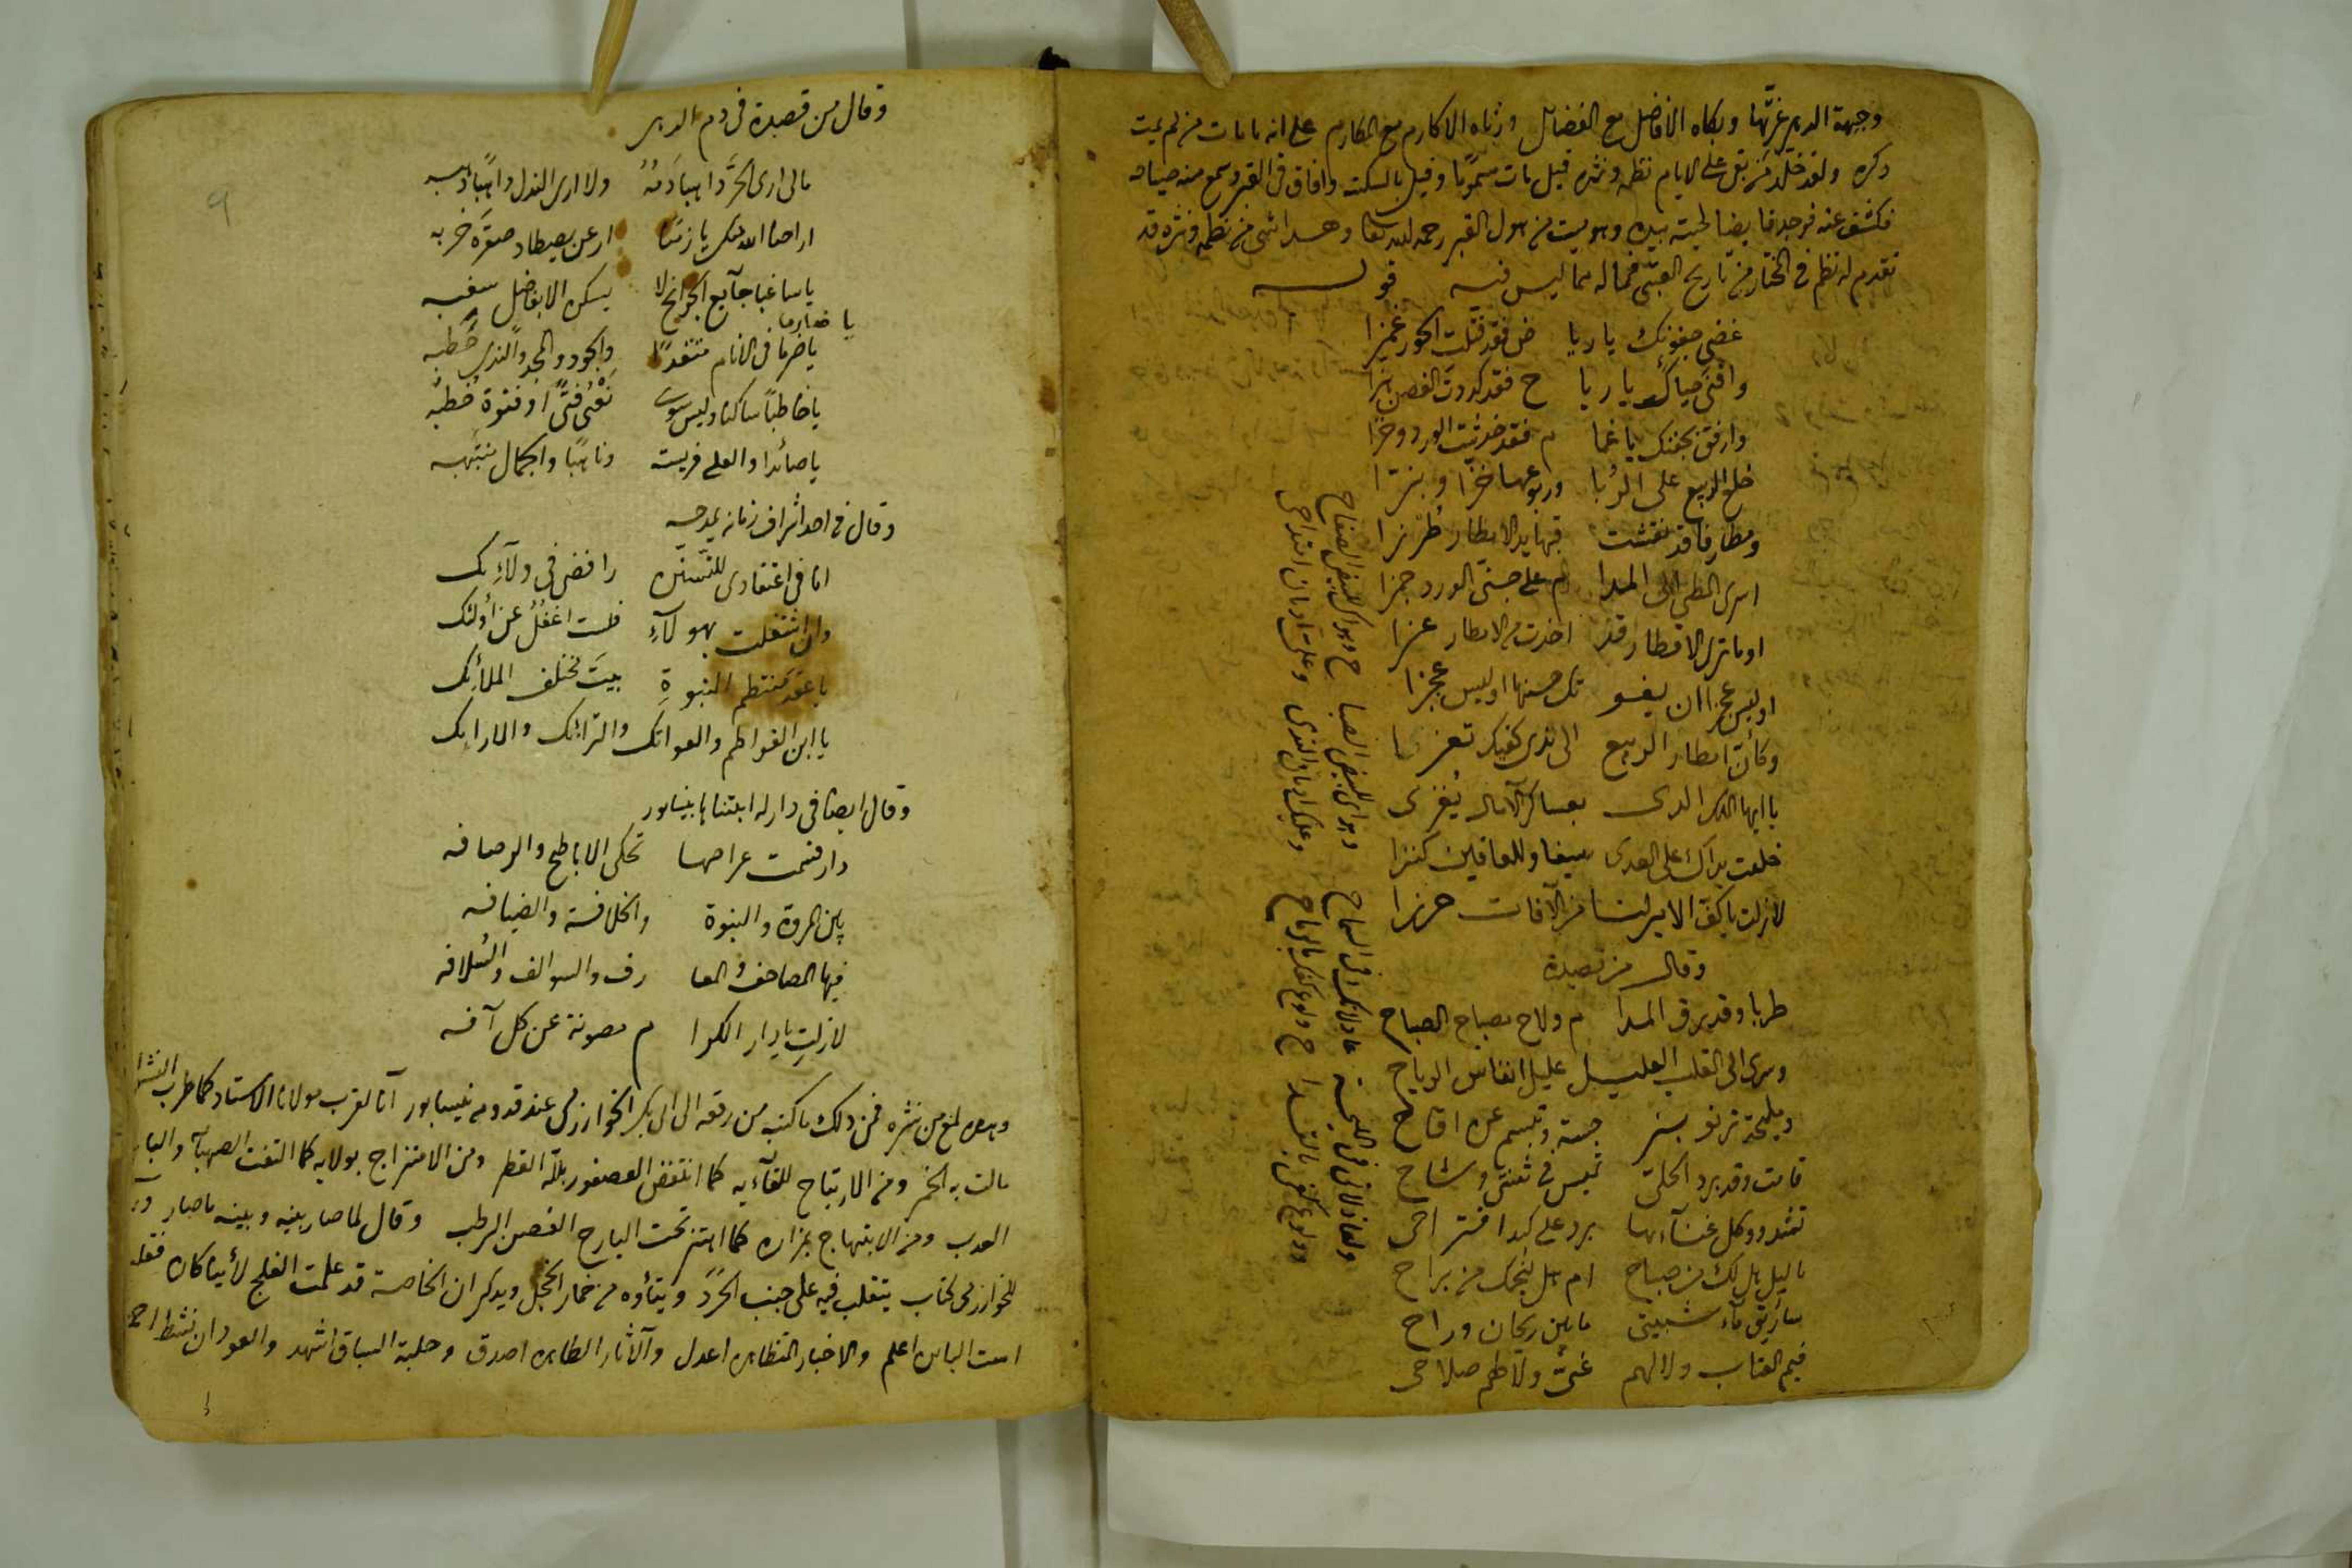 وجبهة الدهر غرتها وبكاه الافاضل مع الفضائل ورثاه الاكارم مع المكارم على انه ما مات من لم يمت
ذكره ولقد خلد من بقى على الايام نظمه ونثره قيل مات مسموما وقيل بالسكتة وافاق فى القبر وسمع منه صياحه
فكشف عنه فوجد قابضا لحيته بيده وهو ميت من هول القبر رحمه الله تعالى وهذا شى من نظمه ونثره قد
تقدم له نظم فى المختار من تاريخ العتبى فماله مما ليس فيه قوله
غضى جفونك يا ريا ض فقد فتنت الحور غمزا
واقنى حياك يا ريا ح فقد كددت الغصن هزا
وارفق بجفنك يا غما م فقد خدشت الورد وخزا
خلع الربيع على الربا وربوعها خزا وبزا
ومطارفا قد نقشت فيها يد الامطار طرزا
اسرى المطى الى المدا م على جنى الورد جمزا
اوما ترى الاقطار قد اخذت من الامطار عزا
اوليس عجزا ان يفو تك حسنها اوليس عجزا
وكأن امطار الربيع الى ندى كفيك تعزى
يا ايها الملك الذى بعساكر الآمال يغزى
خلقت يداك على العدى سيفا وللعافين كنزا
لازلت يا كف الامير لنا من الآفات حرزا
وقال من قصيدة
طربا وقد برق المدا م ولاح مصباح الصباح
وسرى الى القلب العليل عليل انفاس الرياح
ومليحة ترنو بنر جسة وتبسم عن اقاح
قامت وقد برد الحلى تميس فى ثنيى وشاح
تشدو وكل غنآءها برد على كبد اقتراحى
يا ليل هل لك من صباح ام هل لنجمك من براح
ساريق ماء شبيبتى ما بين ريحان وراح
فيم العتاب ولا لهم غيى ولا لهم صلاحى
ولعاذلاتى فى المليحة عاذلاتك فى السماح
وهواى للبيض الصبا ح وهواك للبيض الصفاح
وولوع كفى بالقدا ح ولوع كفك بالرماح
وعليك ادمان الندى وعلى ادمان امتداحى
وقال من قصيدة فى ذم الدهر
مالى ارى الحر ذاهبا دمه ولا ارى النذل ذاهبا ذهبه
اراحنا الله منك يا زمنا ارعن يصطاد صقره خربه
يا ساغبا جآيع الجوانح لا يسكن الا بفاضل سغبه
يا ضارما
يا ضرما فى الانام متقدا والجود والمجد والندى حطبه
يا خاطبا ساكتا وليس سوى نعى فتى او فتوة خطبه
يا صائدا والعلى فريسته وناهبا والجمال منتهبه
وقال فى احد اشراف زمانه يمدحه
انا فى اعتقادى للتسنن رافضى فى ولآئك
وان اشتغلت بهولآء فلست اغفل عن أولئك
يا عقد منتظم النبوة بيت مختلف الملائك
يا ابن الفواطم والعواتك والترائك والارائك
وقال ايضا فى دار له ابتناها بنيسابور
دار قسمت عراصها تحكى الاباطح والرصافه
بين المروة والنبوة والخلافة والضيافه
فيها المصاحف والمعا رف والسوالف والسلافه
لازلت يا دار الكرا م مصونة عن كل آفه
وهذه لمع من نثره فمن ذلك ما كتبه من رقعة الى ابى بكر الخوارزمى عند قدومه نيسابور انا لقرب مولانا الاستاد كما طرب النشوان
مالت به الخمر ومن الارتياح للقآئه كما انتفض العصفور بلله القطر ومن الامتزاج بولايه كما التقت الصهبآء والبارد
العذب ومن الابتهاج بمزاره كما اهتز تحت البارح الغصن الرطب وقال لما صار بينه وبينه ما صار
للخوارزمى كتاب يتقلب فيه على جنب الحرد ويتأوه من خمار الخجل ويذكر ان الخاصة قد علمت الفلج لأينا كان فقلت
است البائن اعلم والاخبار المتظاهره اعدل والآثار الظاهره اصدق وحلبة السباق اشهد والعود ان نشط احمد